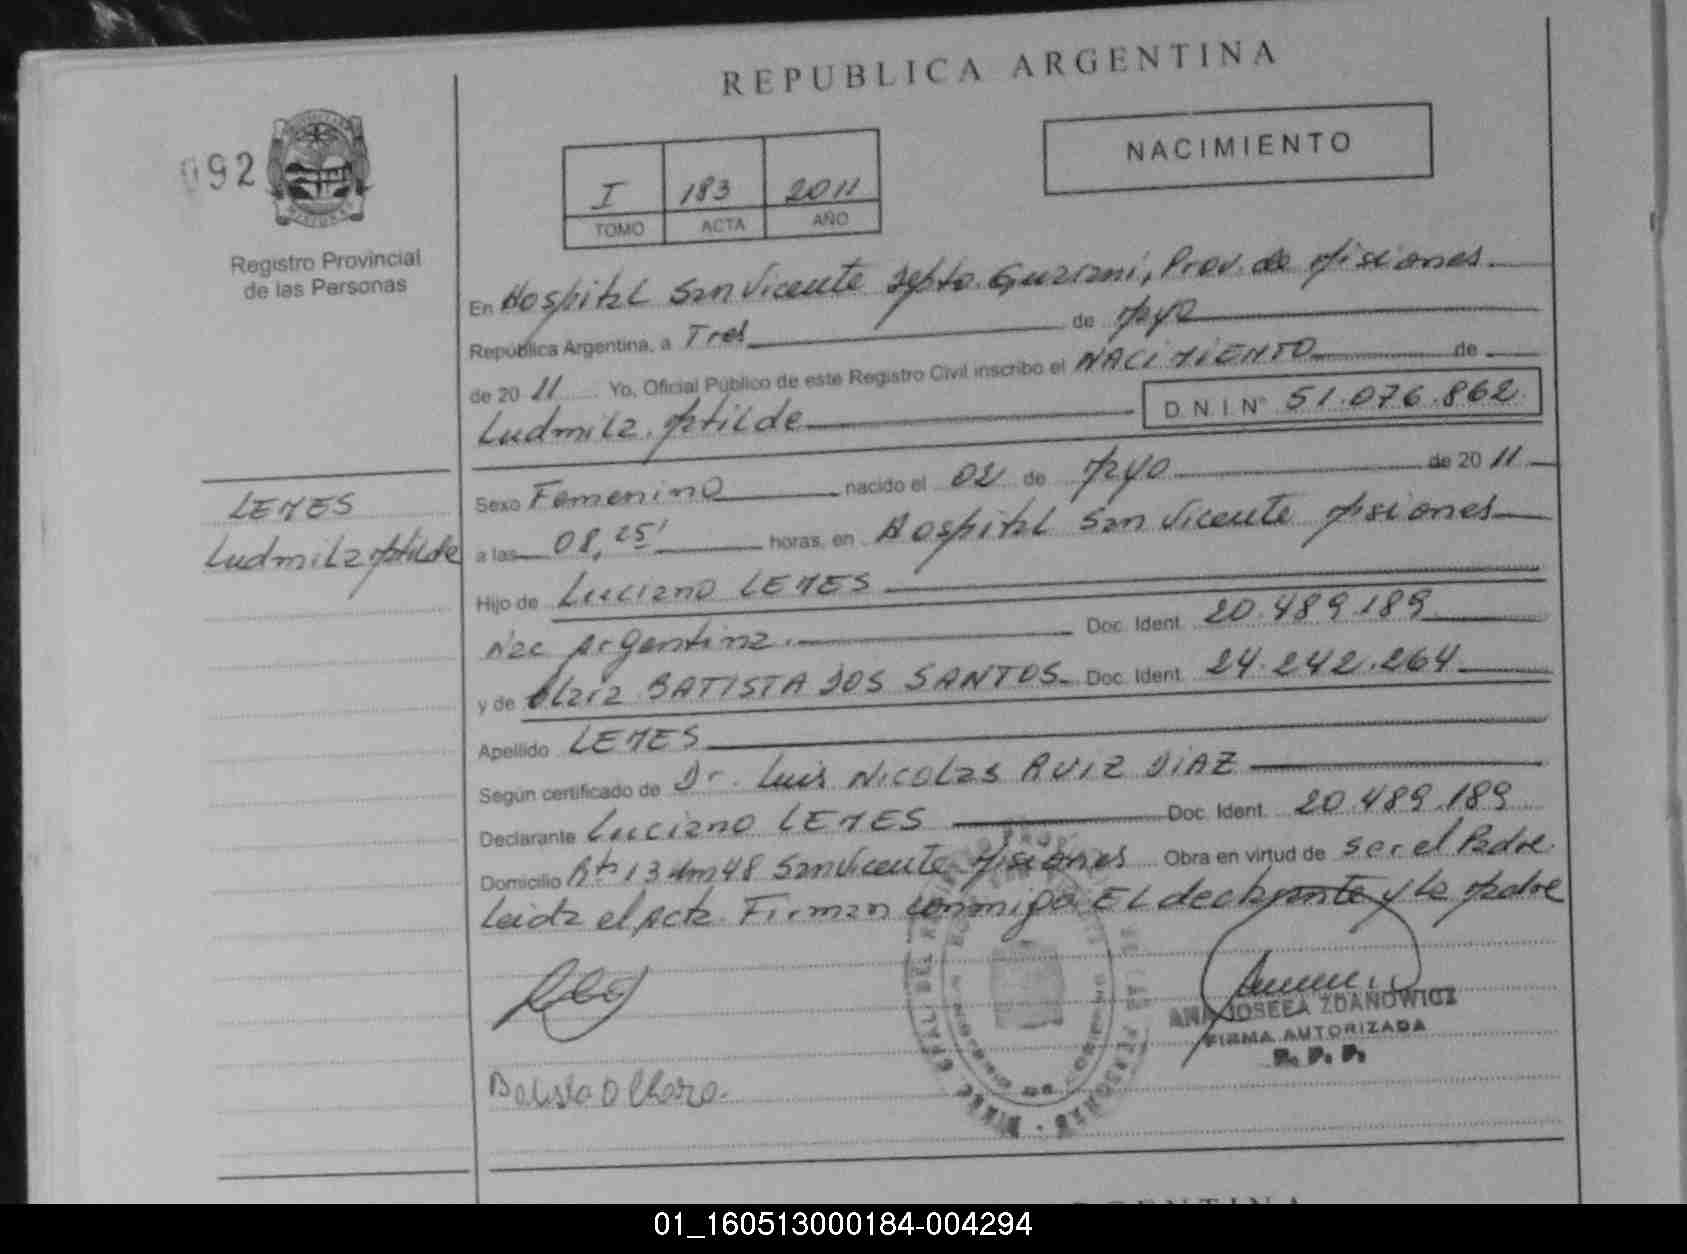 REPUBLICA ARGENTINA
092
NACIMIENTO
I 183 2011
TOMO ACTA AÑO
Registro Provincial
de las Personas
En Hospital San Vicente Depto. Guarani, Prov. de Misiones
República Argentina, a Tres de Mayo
de 20 11 Yo, Oficial Público de este Registro Civil inscribo el NACIMIENTO de
Ludmila Matilde D.N.I. Nº 51.076.862
LEMES
Ludmila Matilde
Sexo Femenino nacido el 02 de Mayo de 20 11
a las 08,25' horas, en Hospital San Vicente Misiones
Hijo de Luciano LEMES
Nac Argentina. Doc. Ident. 20.489.189
y de BATISTA DOS SANTOS Doc. Ident. 24.242.264
Apellido LEMES
Según certificado de Dr. Luis Nicolas RUIZ DIAZ
Declarante Luciano LEMES Doc. Ident. 20.489.189
Domicilio Rta 13 Km 48 San Vicente Misiones Obra en virtud de ser el Padre.
Leida el Acta Firman conmigo El declarante y la Madre
ANA JOSEFA ZDANOWICZ
FIRMA AUTORIZADA
R. P. P.
Batista
01_160513000184-004294